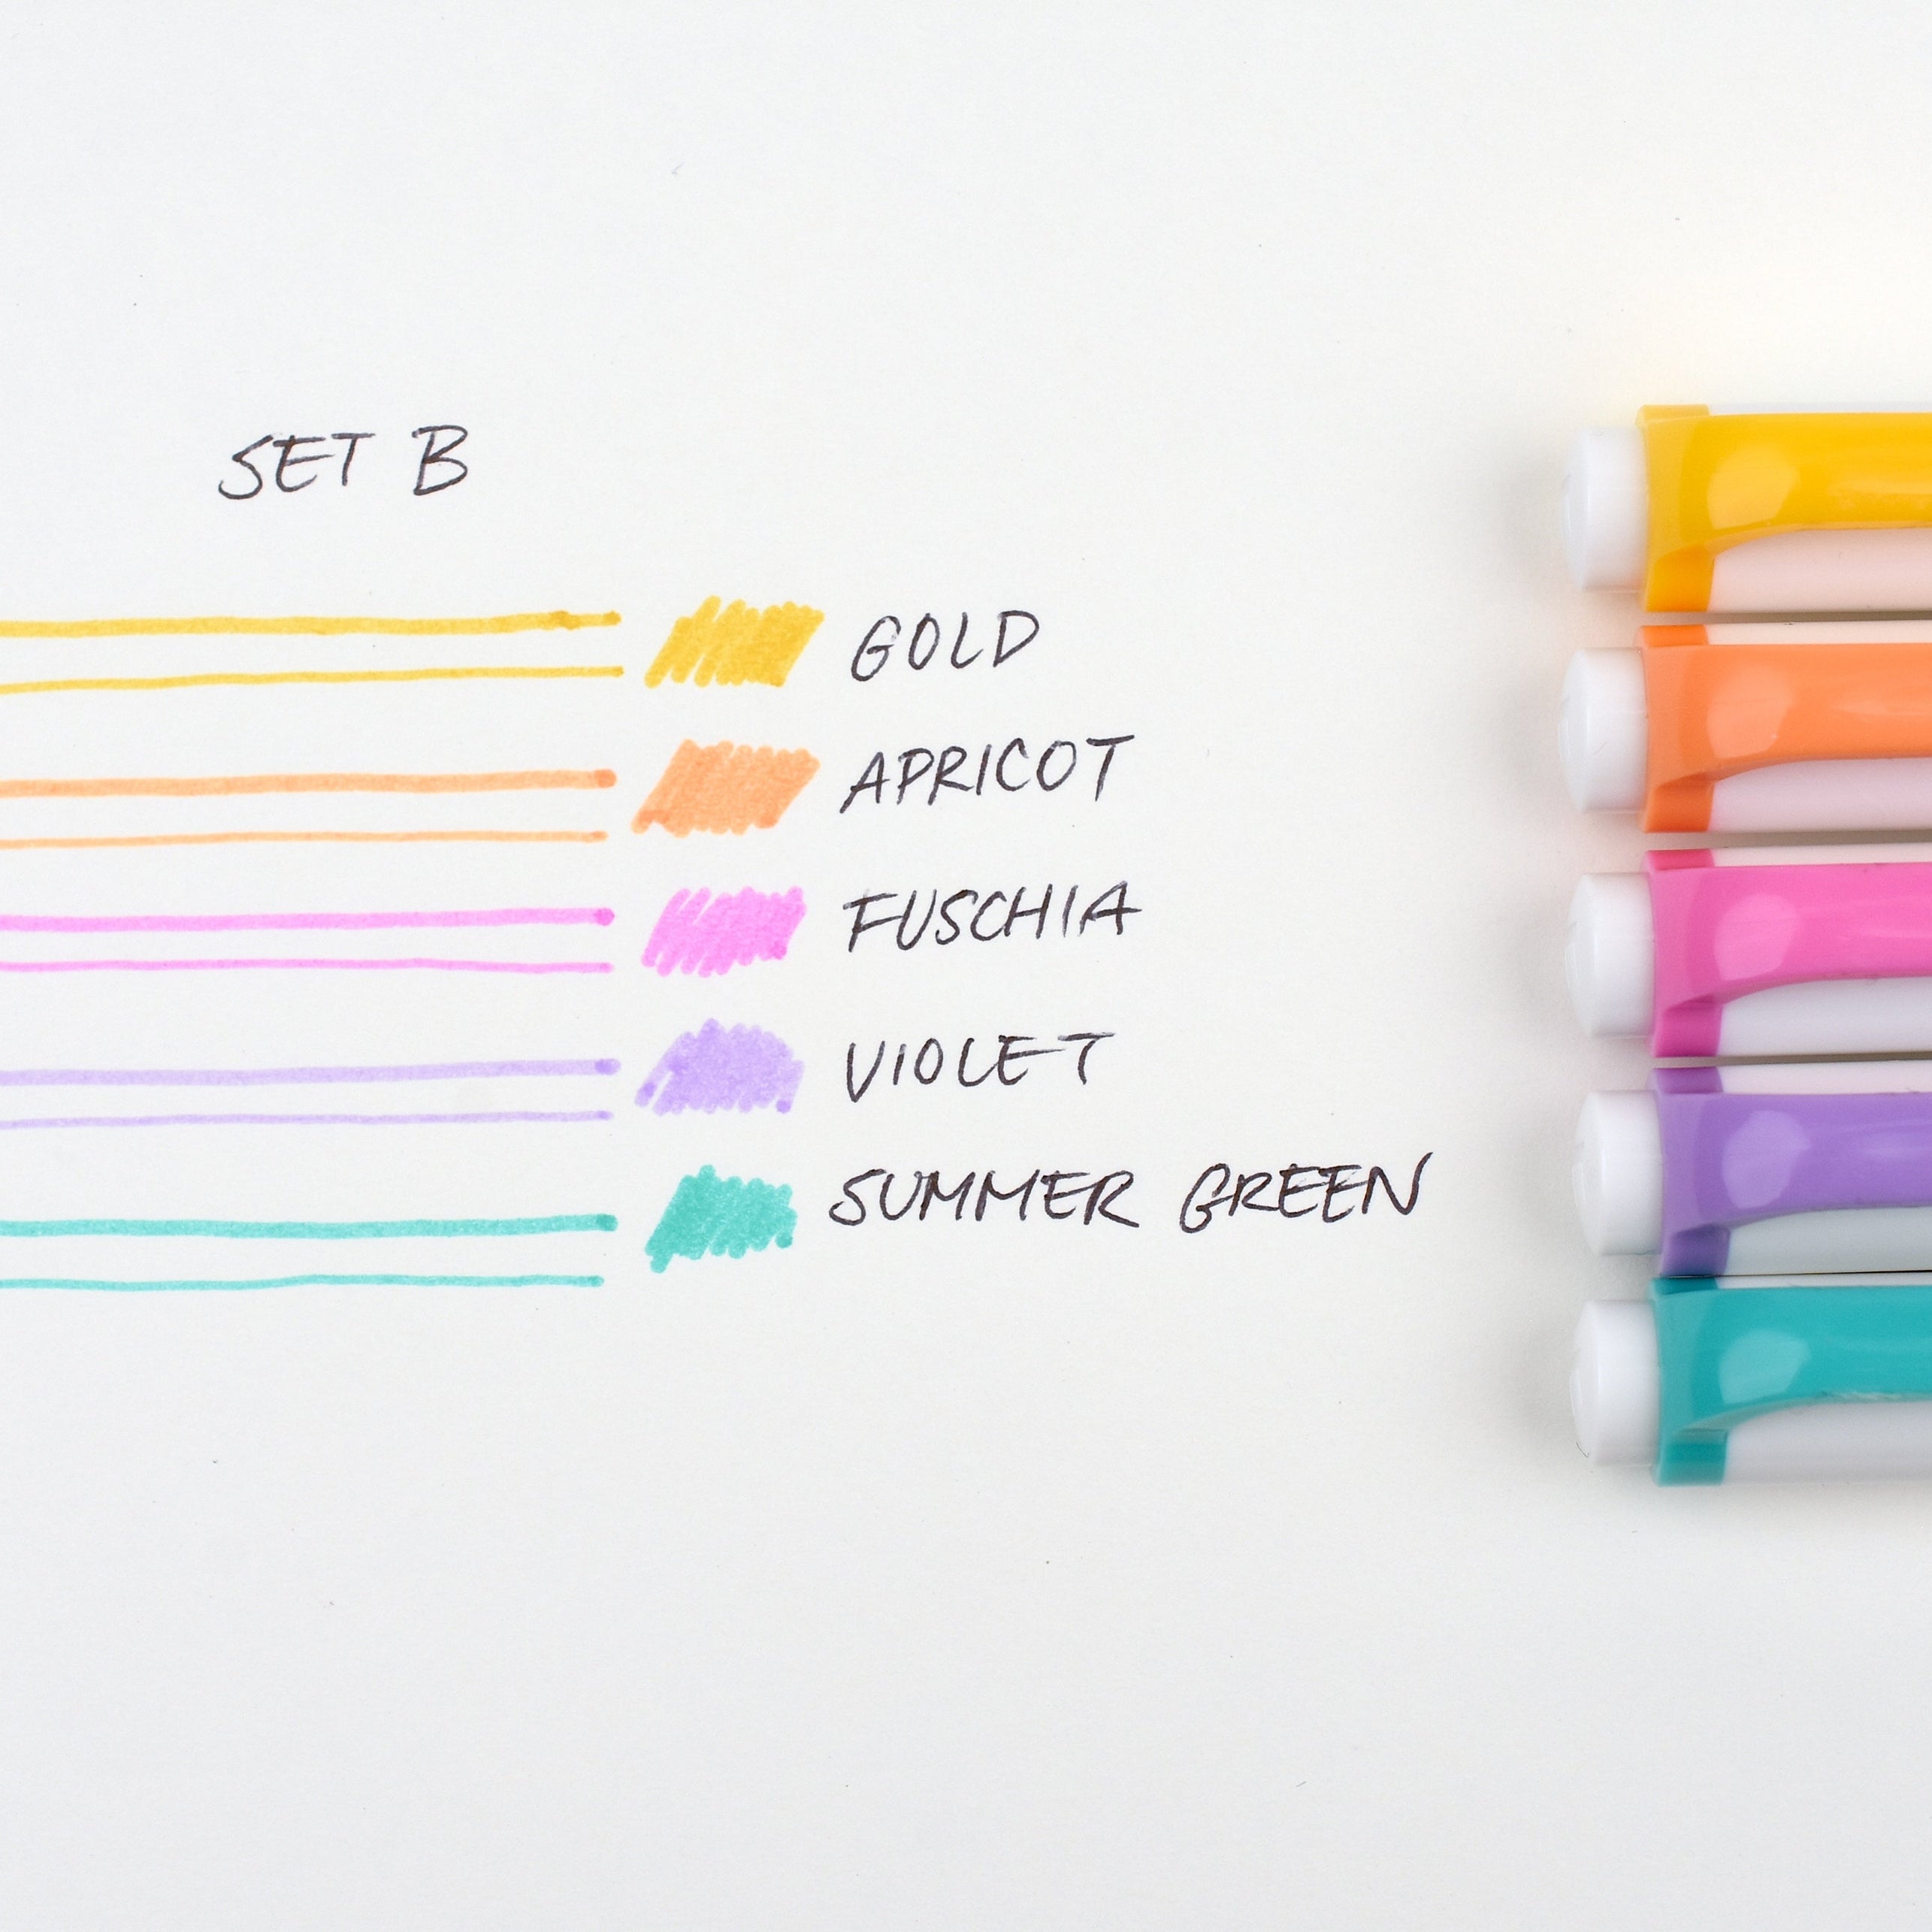 SET B
GOLD
APRICOT
FUSCHIA
VIOLET
SUMMER GREEN